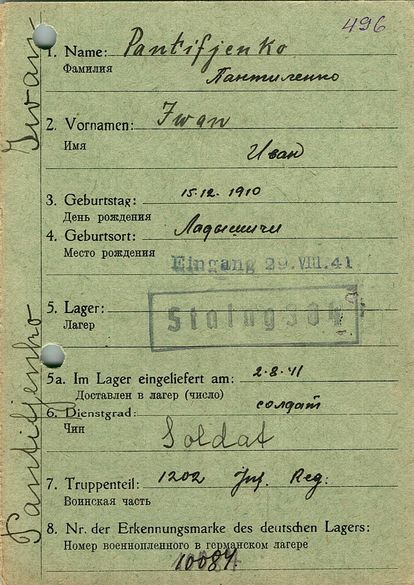 496
1. Name: Pantifjenko
Фамилия
Пантиленко
2. Vornamen: Iwan
Имя
Иван
3. Geburtstag: 15.12.1910
День рождения
4. Geburtsort: Ладышичи
Место рождения
Eingang 29.VIII.41
5. Lager: Stalag 304
Лагер
5a. Im Lager eingeliefert am: 2.8.41
Доставлен в лагер (число)
6. Dienstgrad: солдат
Чин
Soldat
7. Truppenteil: 1202 Inf. Reg.
Воинская часть
8. Nr. der Erkennungsmarke des deutschen Lagers:
Номер военнопленного в германском лагере
10084
Pantifjenko Iwan